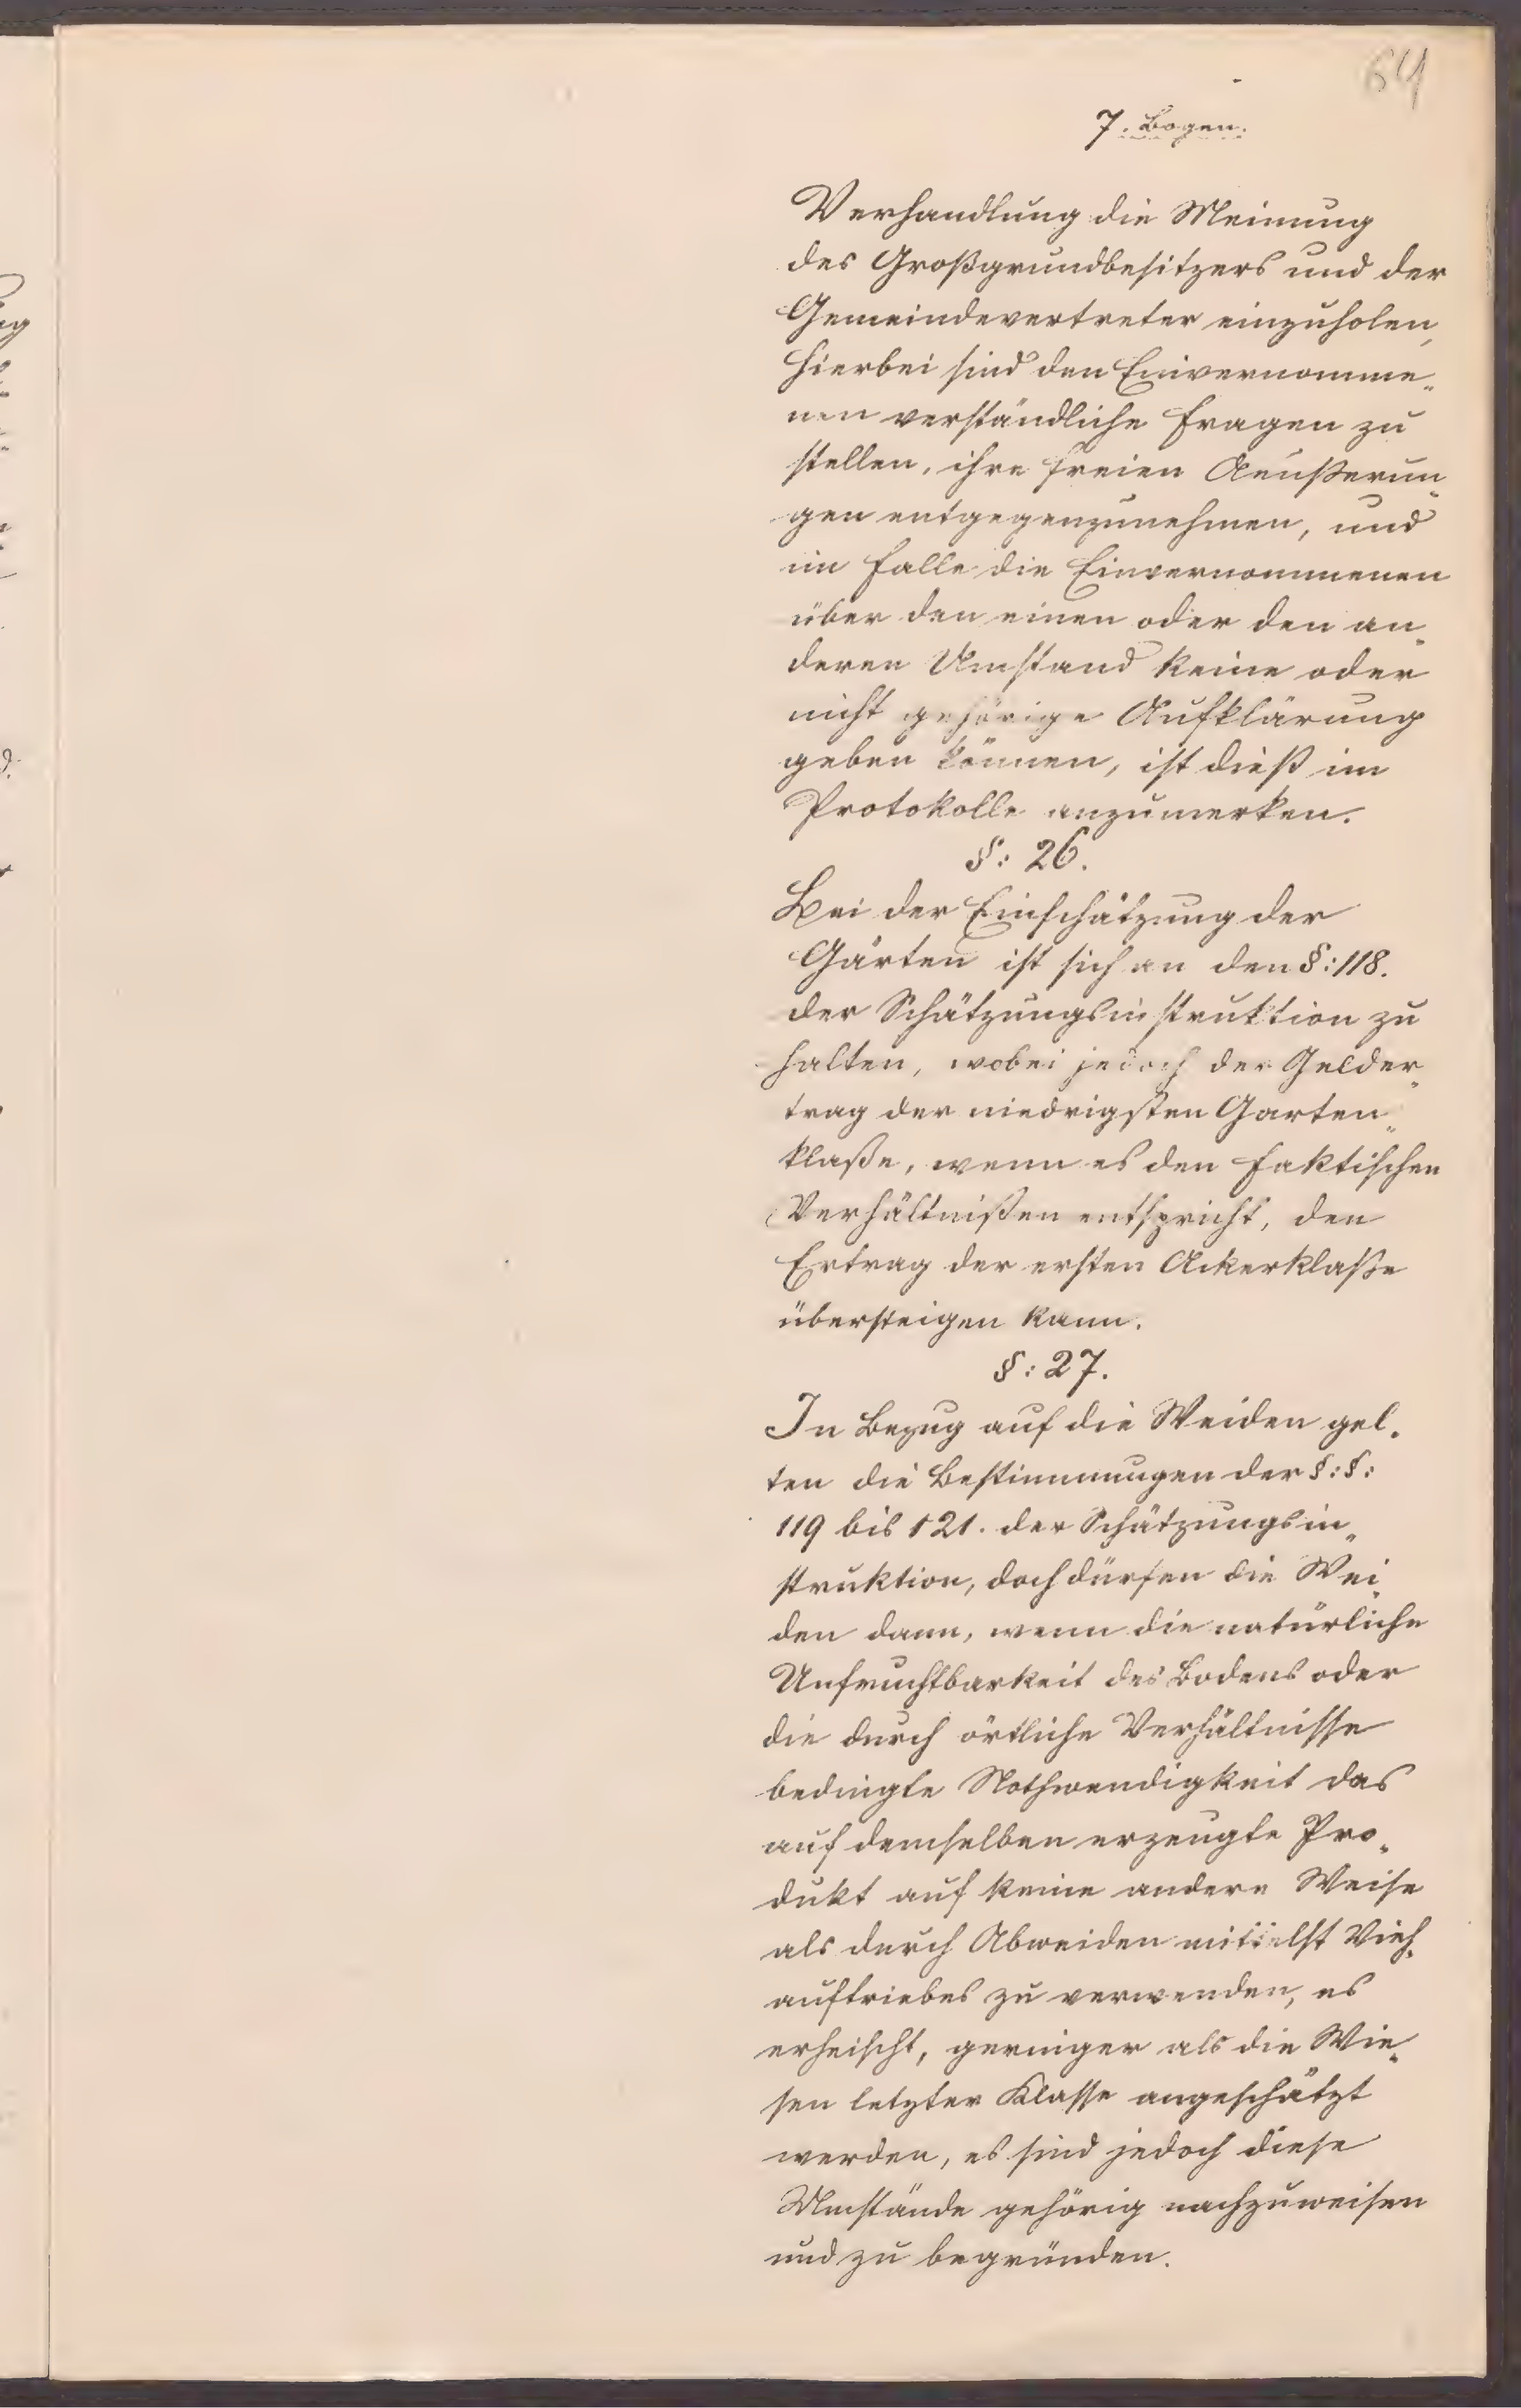 64
7. Bogen.
Verhandlung die Meinung
des Großgrundbesitzers und der
Gemeindevertreter einzuholen,
hierbei sind den Einvernomme„
nen verständliche Fragen zu
stellen, ihre freien Aeußerun„
gen entgegenzunehmen, und
im Falle die Einvernommenen
über den einen oder den an„
deren Umstand keine oder
nicht gehörige Aufklärung
geben können, ist dieß im
Protokolle anzumerken.
§: 26.
Bei der Einschätzung der
Gärten ist sich an den §: 118.
der Schätzungsinstruktion zu
halten, wobei jedoch der Gelder„
trag der niedrigsten Garten„
klaße, wenn es den faktischen
Verhältnißen entspricht, den
Ertrag der ersten Ackerklaße
übersteigen kann.
§: 27.
In Bezug auf die Weiden gel„
ten die Bestimmungen der §:§:
119 bis 121. der Schätzungsin„
struktion, doch dürfen die Wei„
den dann, wenn die natürliche
Unfruchtbarkeit des Bodens oder
die durch örtliche Verhältnisse
bedingte Nothwendigkeit das
auf demselben erzeugte Pro„
dukt auf keine andere Weise
als durch Abweiden mittelst Vieh„
auftriebes zu verwenden, es
erheischt, geringer als die Wie„
sen letzter Klasse angeschätzt
werden, es sind jedoch diese
Umstände gehörig nachzuweisen
und zu begründen.